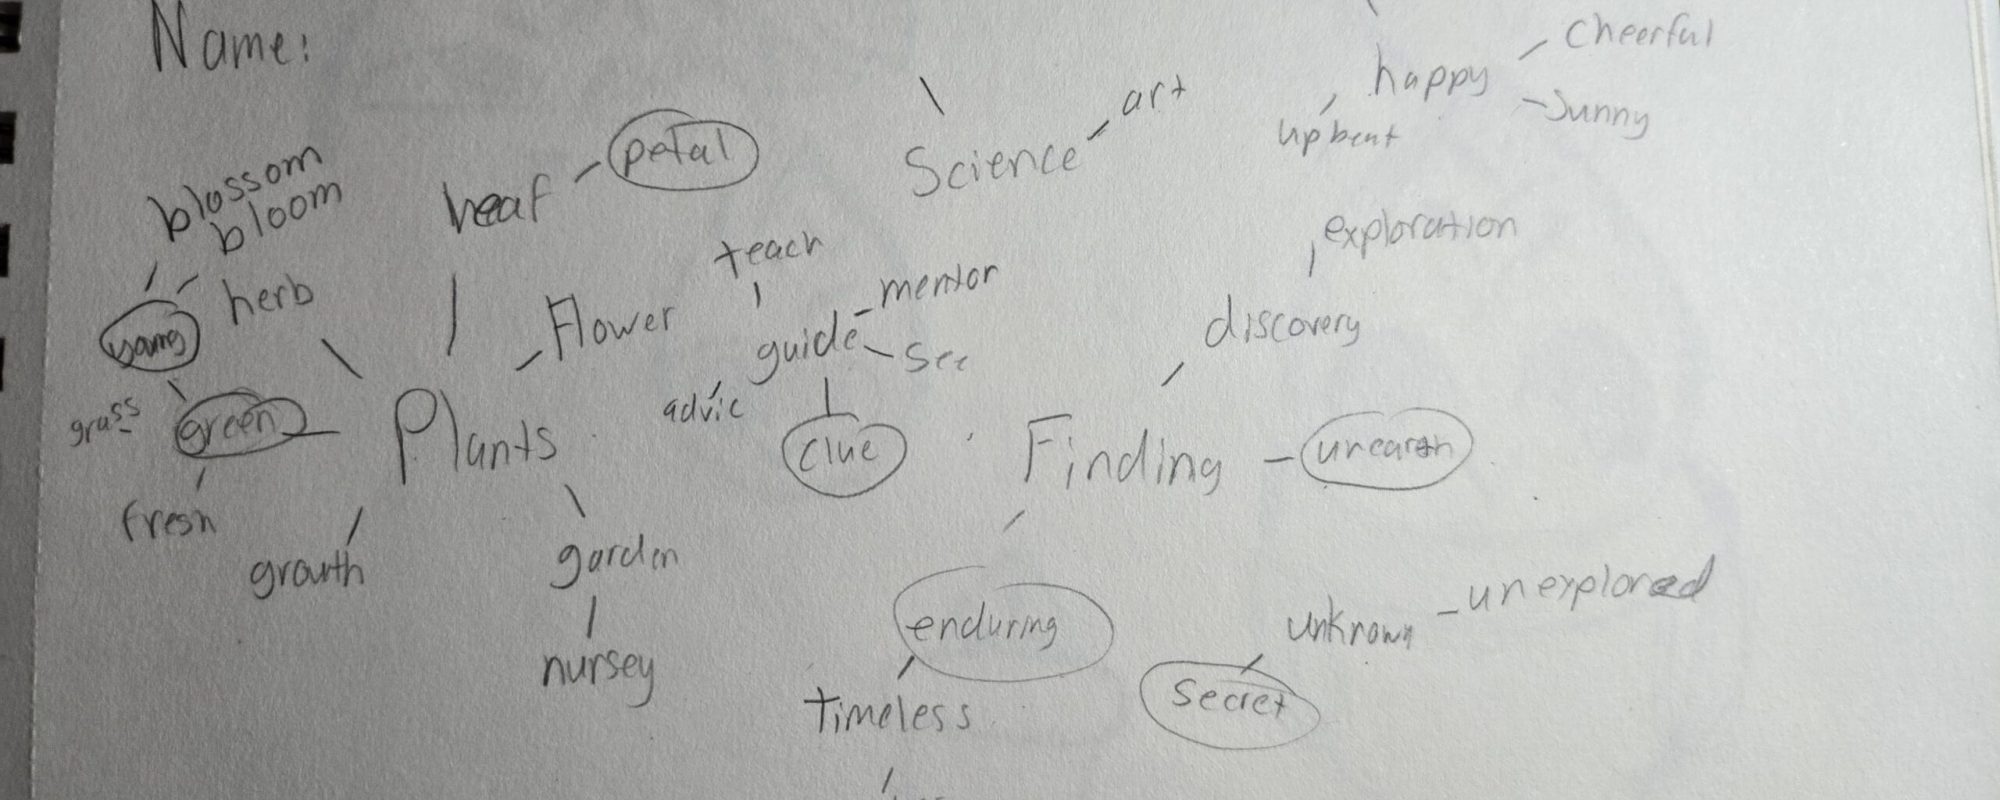 Name:
cheerful
happy
Sunny
upbeat
art
Science
petal
leaf
blossom
bloom
herb
young
grass
green
fresh
growth
Plants
Flower
garden
nursey
teach
mentor
guide
see
advic
clue
exploration
discovery
Finding
unearth
enduring
timeless
unknown
unexplored
Secret